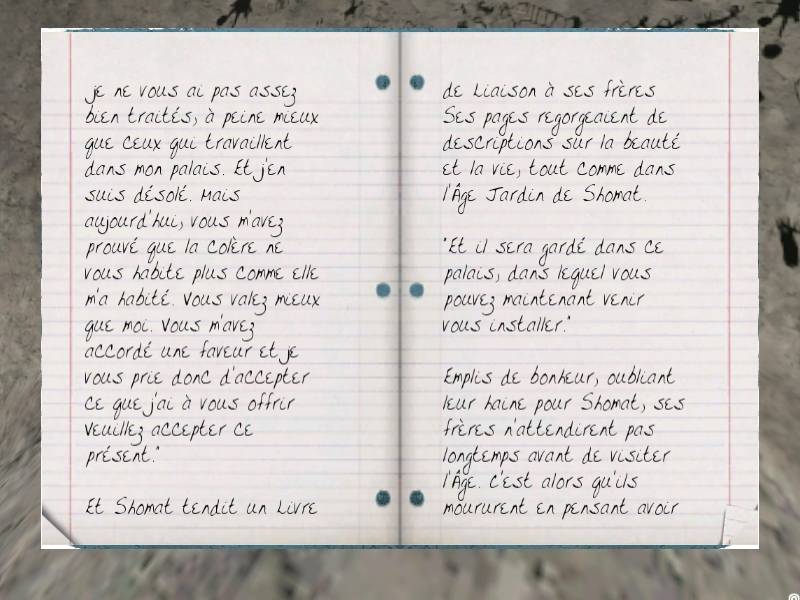 je ne vous ai pas assez
bien traités, à peine mieux
que ceux qui travaillent
dans mon palais. Et j'en
suis désolé. Mais
aujourd'hui, vous m'avez
prouvé que la colère ne
vous habite plus comme elle
m'a habité. Vous valez mieux
que moi. Vous m'avez
accordé une faveur et je
vous prie donc d'accepter
ce que j'ai à vous offrir
veuillez accepter ce
présent."
Et Shomat tendit un Livre
de Liaison à ses frères
Ses pages regorgeaient de
descriptions sur la beauté
et la vie, tout comme dans
l'Âge Jardin de Shomat.
"Et il sera gardé dans ce
palais, dans lequel vous
pouvez maintenant venir
vous installer."
Emplis de bonheur, oubliant
leur haine pour Shomat, ses
frères n'attendirent pas
longtemps avant de visiter
l'Âge. C'est alors qu'ils
moururent en pensant avoir